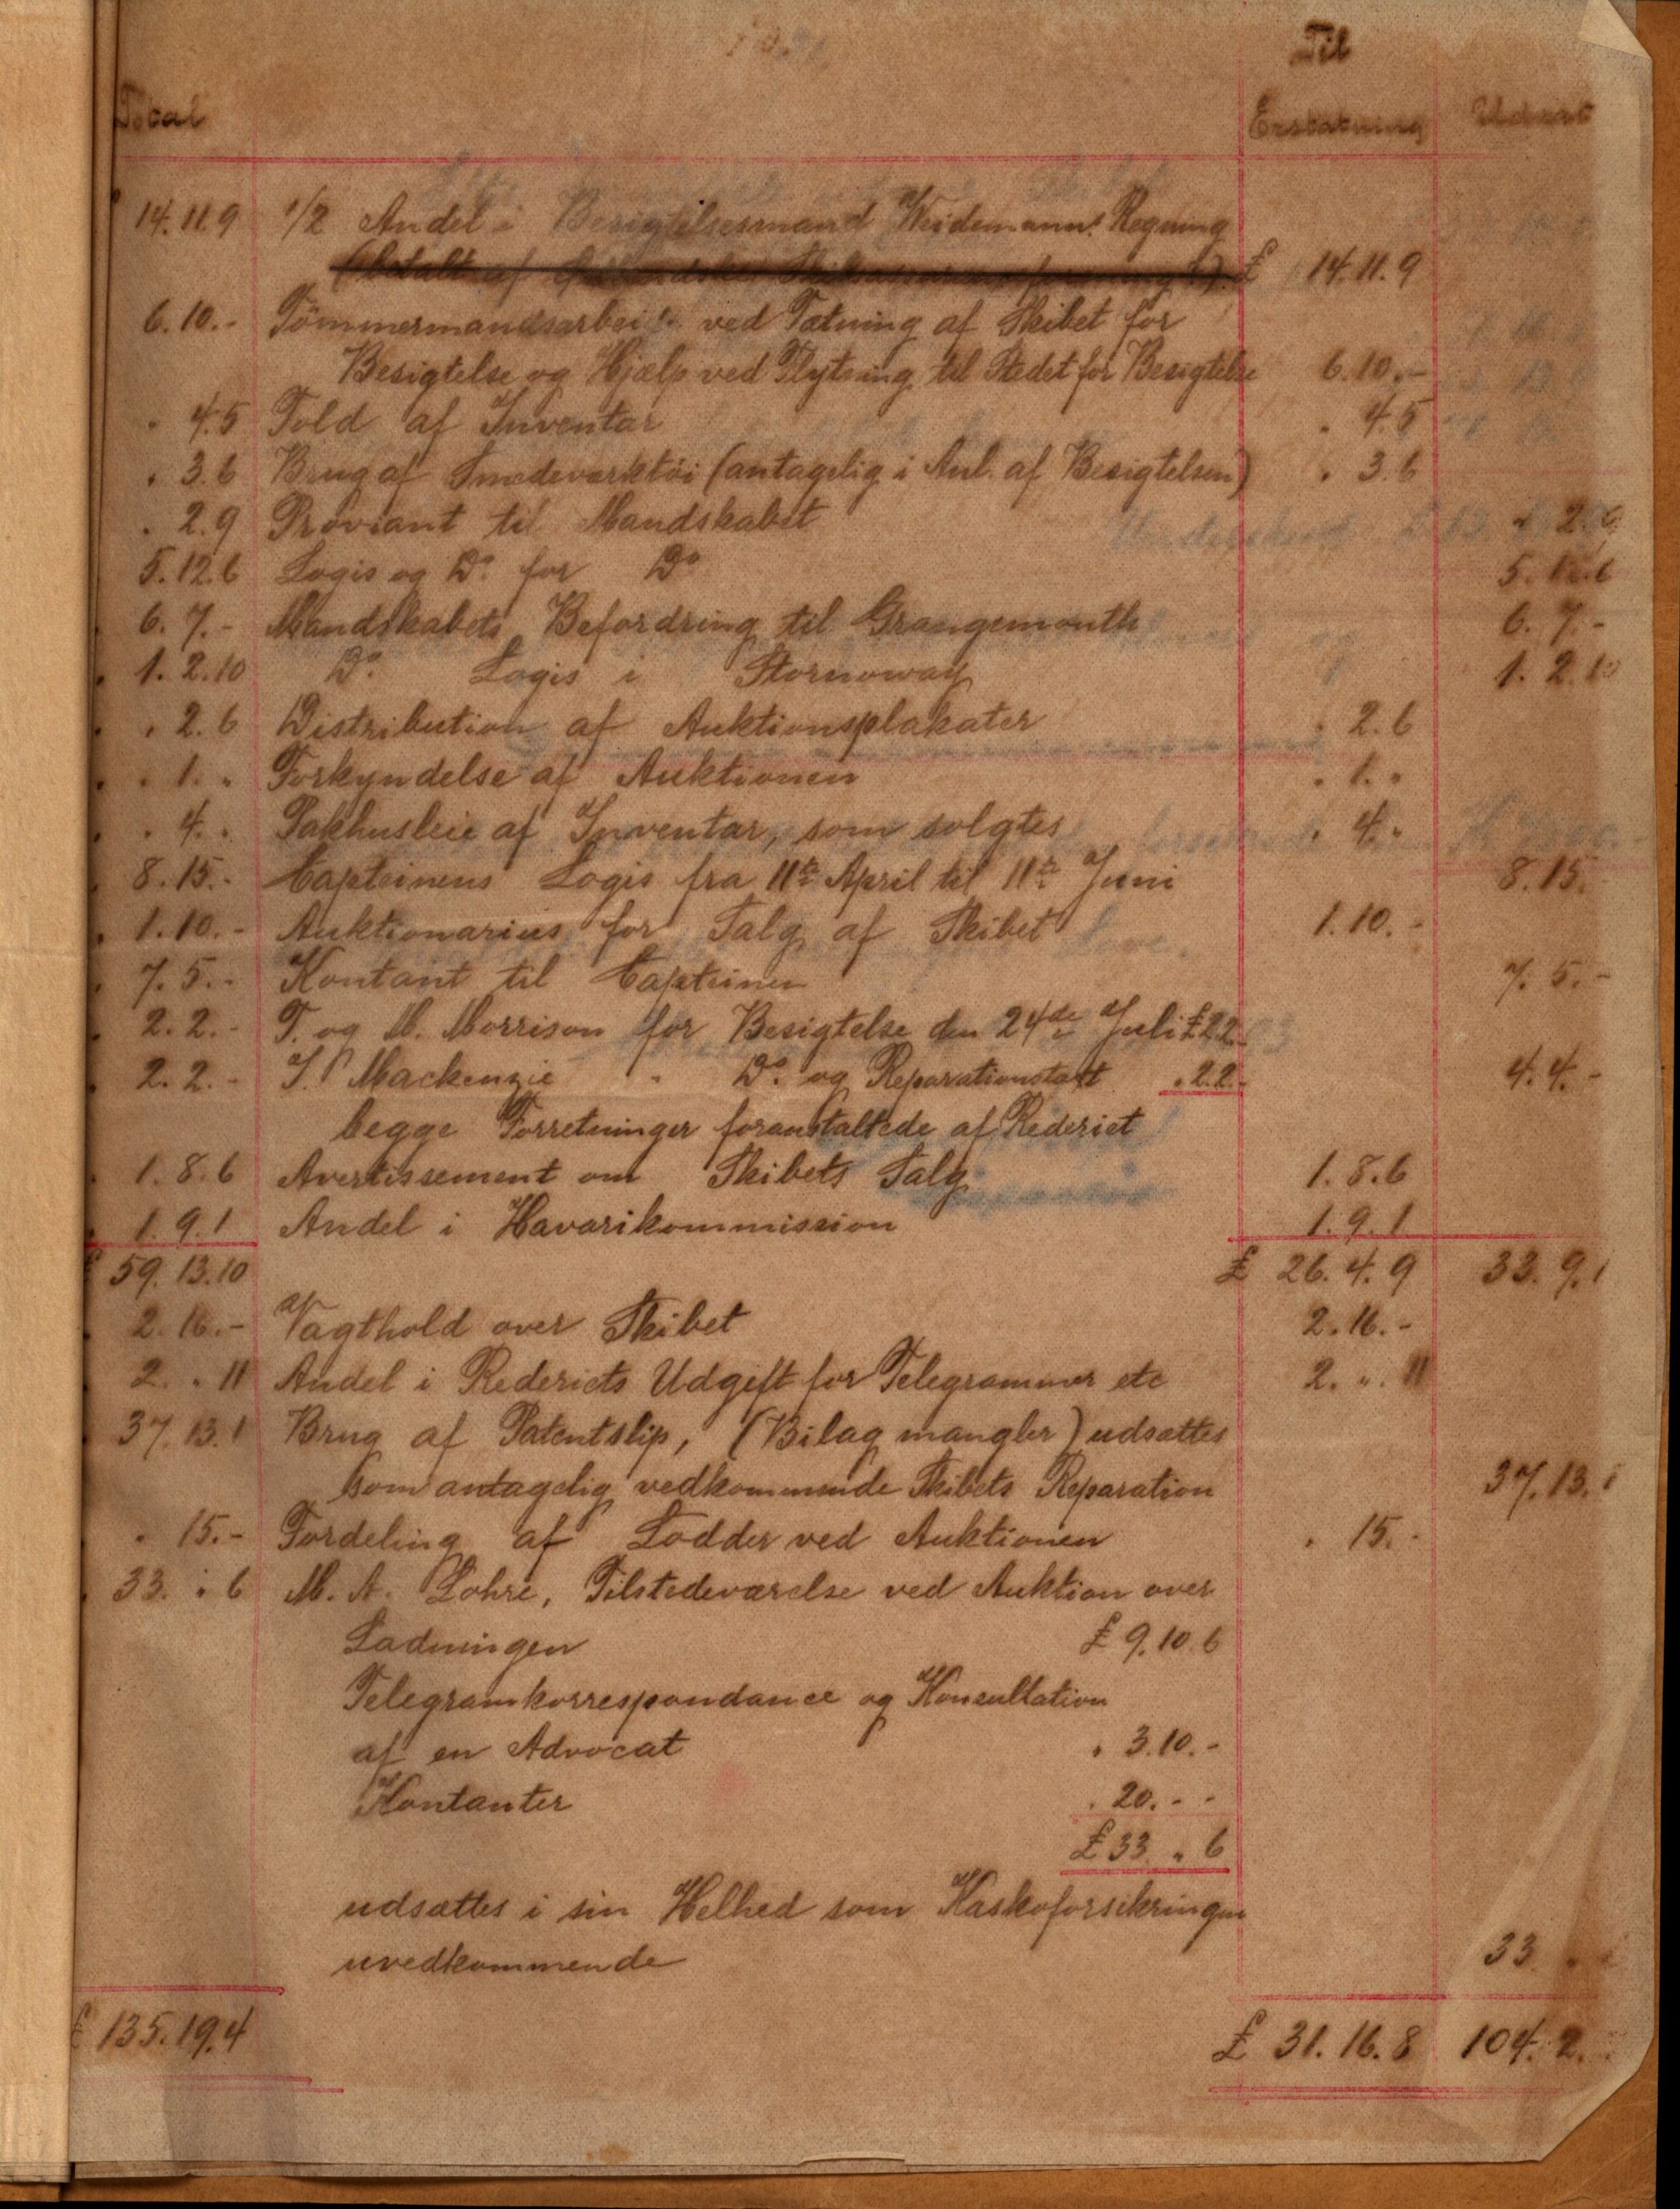 Til
Total Erstatning Udsat
14.11.9 1/2 Andel i Besigtelsesmand Weidemanns Regning
(betalt af £ 14.11.9
6.10.- Tömmermandsarbeide ved Tætning af Skibet for
Besigtelse og Hjælp ved Flytning til Stedet for Besigtelse 6.10.-
" 4.5 Told af Inventar " 4.5
" 3.6 Brug af Smedeværktöi (antagelig i Anl. af Besigtelsen) " 3.6
" 2.9 Proviant til Mandskabet " 2.
5.12.6 Logis og Do. for Do 5.12.6
6.7.- Mandskabets Befordring til Grangemouth 6.7.-
1.2.10 Do. Logis i Stornoway 1.2.10
" 2.6 Distribution af Auktionsplakater " 2.6
" 1. " Forkyndelse af Auktionen " 1. "
" 4. " Pakhusleie af Inventar, som solgtes " 4. "
8.15.- Capteinens Logis fra 11te April til 11te Juni 8.15.
1.10.- Auktionarius for Salg af Skibet 1.10.-
7.5.- Kontant til Capteinen 7.5.-
2.2.- T. og M. Morrison for Besigtelse den 24de Juli £ 2.2.-
2.2.- J. Mackenzie " Do. og Reparationstaxt " 2.2.- 4.4.-
begge Forretninger foranstaltede af Rederiet
1.8.6 Avertissement om Skibets Salg 1.8.6
1.9.1 Andel i Havarikommission 1.9.1
£ 59.13.10 £ 26.4.9 33.9.1
2.16.- Vagthold over Skibet 2.16.-
2. " 11 Andel i Rederiets Udgift for Telegrammer etc 2. " 11
37.13.1 Brug af Patentslip, (Bilag mangler) udsættes
som antagelig vedkommende Skibets Reparation 37.13.1
" 15.- Fordeling af Lodder ved Auktionen " 15.-
33. " 6 M. A. Lohre, Tilstedeværelse ved Auktion over
Ladningen £ 9.10.6
Telegramkorrespondance og Konsultation
af en Advocat " 3.10.-
Kontanter " 20.- -
£ 33 " 6
udsættes i sin Helhed som Kaskoforsikringen
uvedkommende 33
£ 135.19.4 £ 31.16.8 104.2.